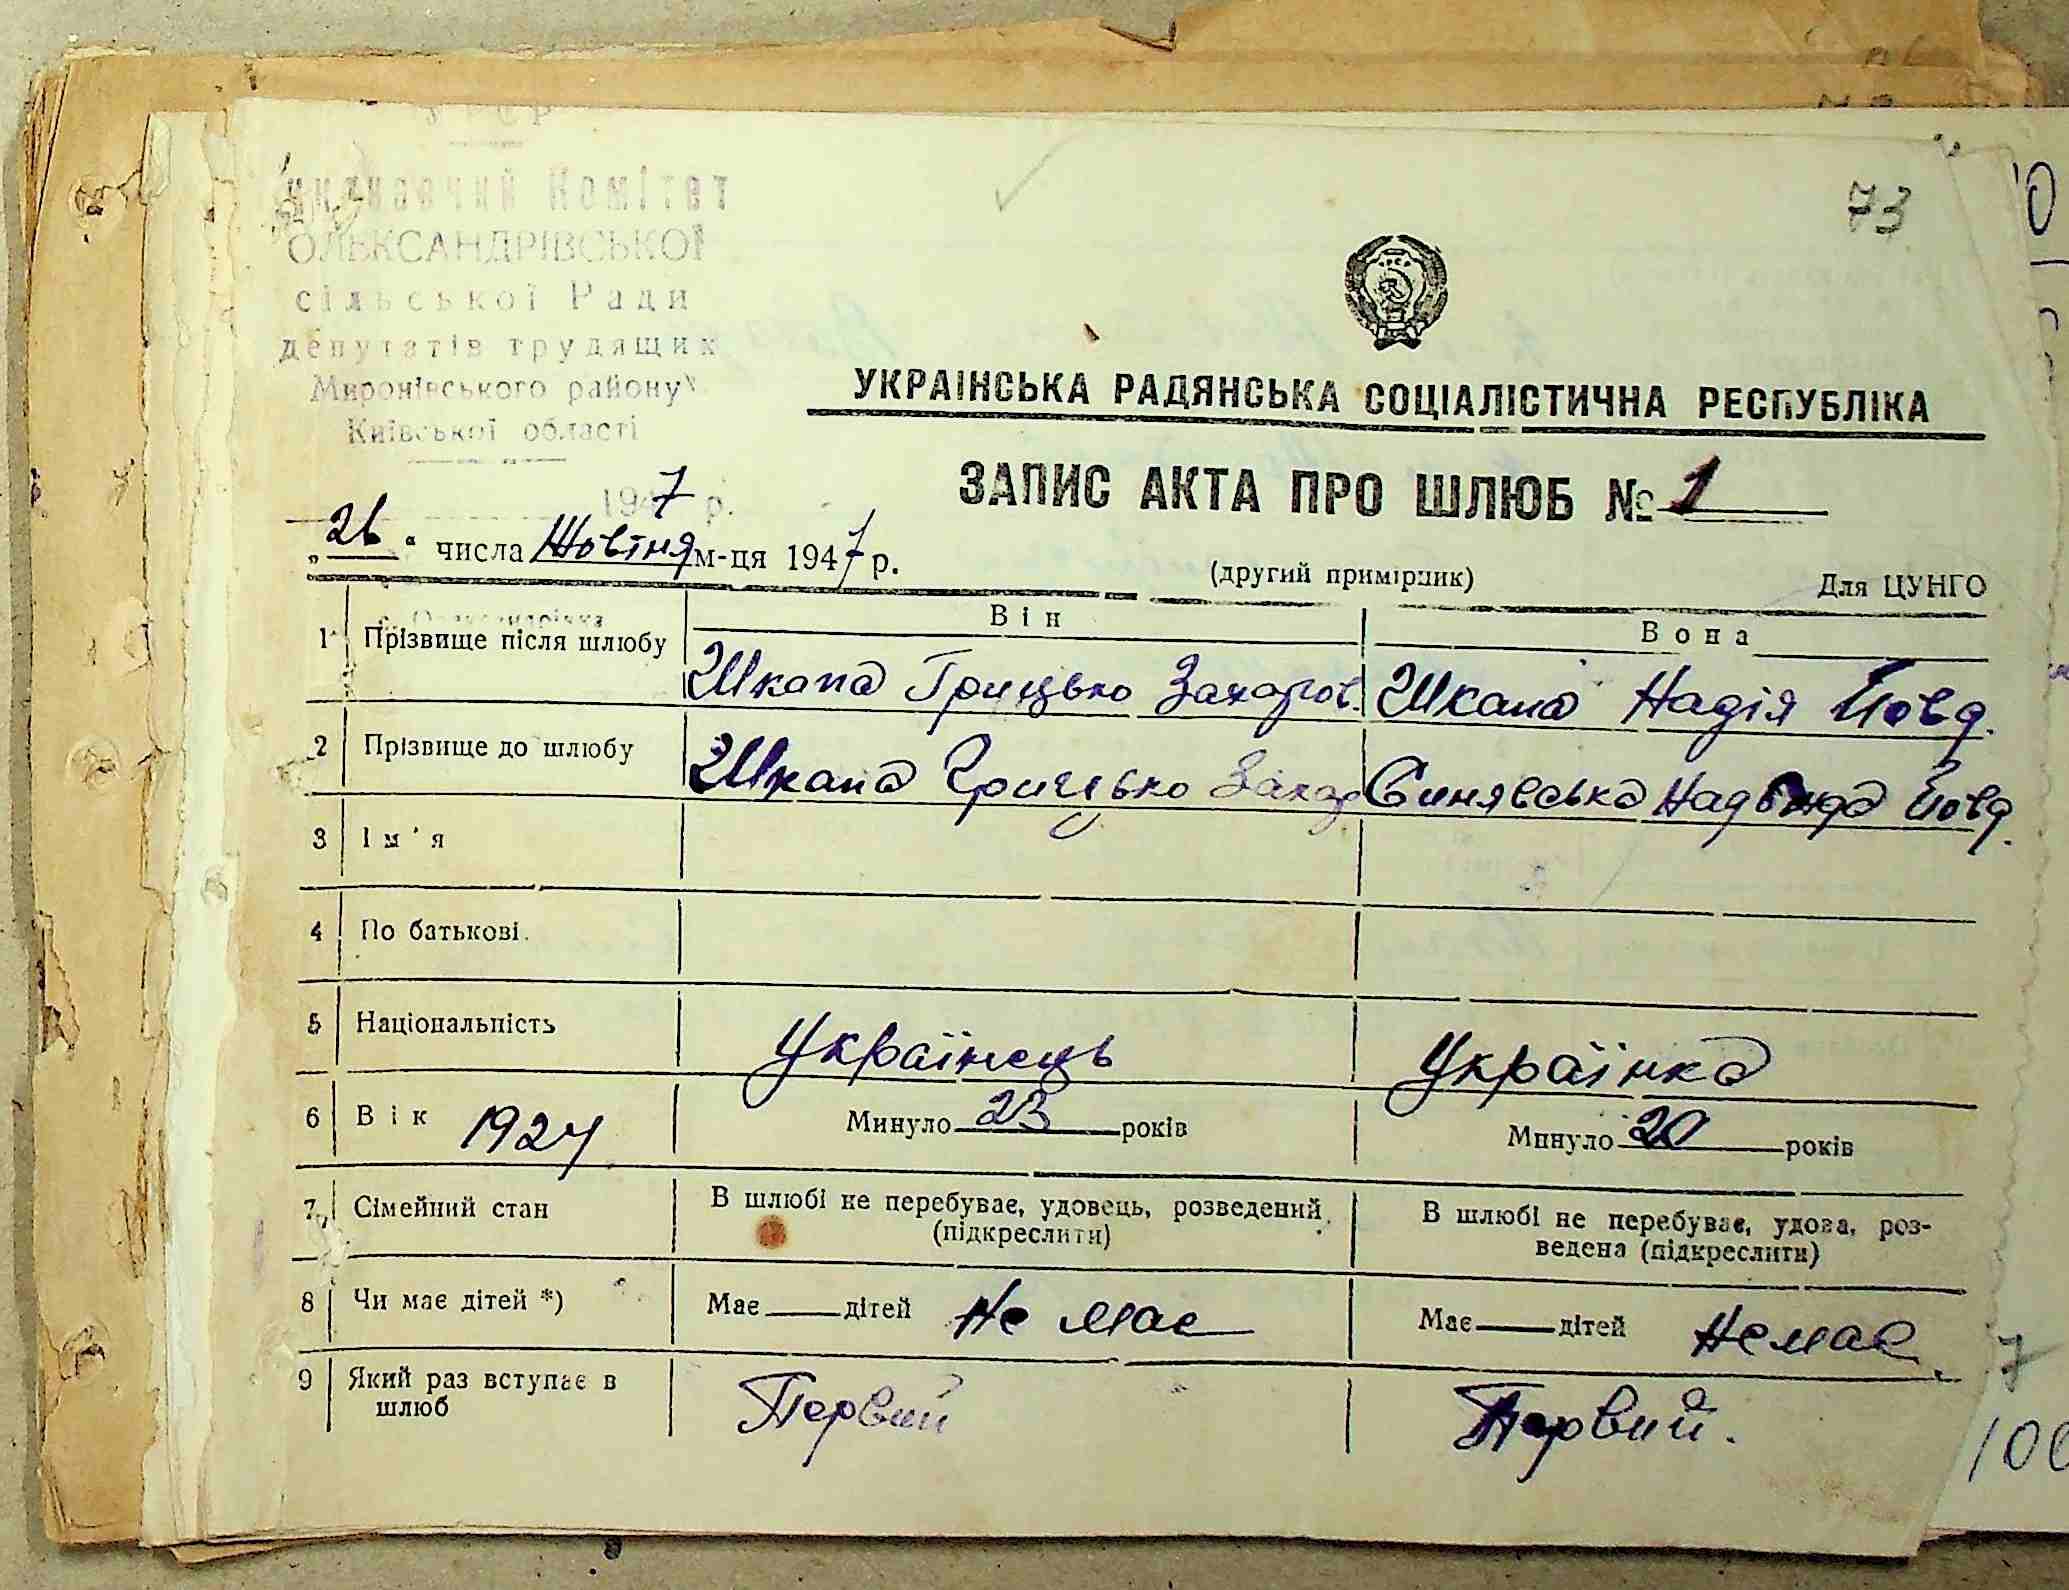 73
Виконавчий Комітет
ОЛЕКСАНДРІВСЬКОЇ
сільської Ради
депутатів трудящих
Миронівського району
Київської області
1947 р.
УКРАЇНСЬКА РАДЯНСЬКА СОЦІАЛІСТИЧНА РЕСПУБЛІКА
ЗАПИС АКТА ПРО ШЛЮБ № 1
„26“ числа Жовтня м-ця 1947 р.
(другий примірник) Для ЦУНГО
Він Вона
1 Прізвище після шлюбу Шкапа Грицько Захаров. Шкапа Надія Йовд.
2 Прізвище до шлюбу Шкапа Грицько Захар Синявська Надежда Йовд.
3 Ім'я
4 По батькові.
5 Національність Українець Українка
6 Вік 1924 Минуло 23 років Минуло 20 років
7 Сімейний стан В шлюбі не перебуває, удовець, розведений (підкреслити) В шлюбі не перебуває, удова, роз-
ведена (підкреслити)
8 Чи має дітей *) Має дітей Не має Має дітей Немає
9 Який раз вступає в шлюб Первий Первий.